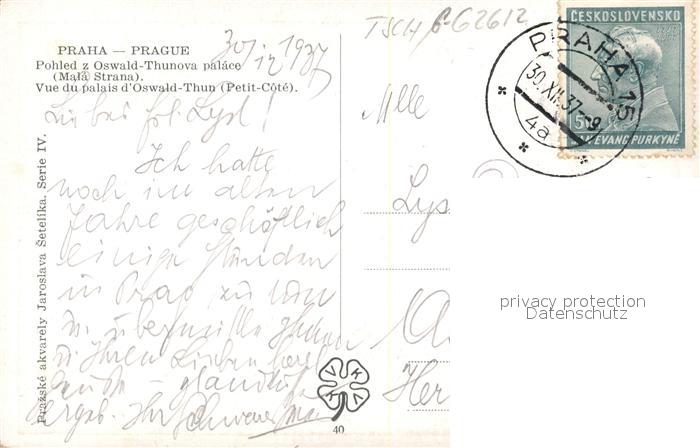 PRAHA — PRAGUE
Pohled z Oswald-Thunova paláce
(Malá Strana).
Vue du palais d'Oswald-Thun (Petit-Côté).
30/12 1937
TSCH 6-G2612
ČESKOSLOVENSKO
PRAHA 15
30.XII.37.-9
4a
JAN EVANG. PURKYNĚ
Liebes Frl. Lysl!
Ich hatte
noch im alten
Jahre geschäftlich
einige Stunden
in Prag zu tun
u. übermittle Ihnen
u. Ihren Lieben
ergeb. Ihr
Mlle
Lys
Her
Pražské akvarely Jaroslava Šetelíka. Serie IV.
VKKV
40
privacy protection
Datenschutz